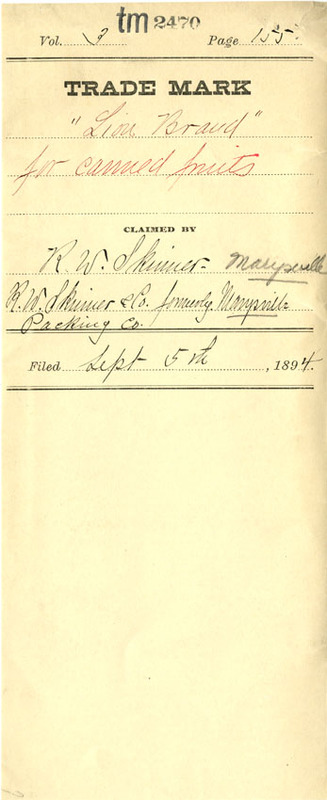 tm 2470
Vol. 3 Page 155
TRADE MARK
"Lion Brand"
for canned fruits
CLAIMED BY
R. W. Skinner - Marysville
R. W. Skinner & Co. formerly Marysville
Packing Co.
Filed Sept 5th, 1894.